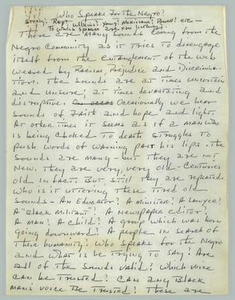 Who Speaks for the Negro?
To which spokesman are you listening?
There are many sounds coming from the
Negro Community as it tries to disengage
itself from the entanglement of the web
weaved by Racial Prejudice and Discrimina-
tion. The sounds are at times uncertain
and unsure, at times devastating and
disruptive. Occasionally we hear
sounds of faith and hope and light.
At other times it seems as if a man who
is being choked to death struggles to
push words of warning past his lips. The
sounds are many - but they are not
new. They are very, very old - centuries
old in fact. But still they are repeated.
Who is it uttering these tired old
sounds - An Educator? A Minister? A Lawyer?
A "Black Militant"? A Newspaper Editor?
A Man? A Child? A group which was born
going downward? A people in search of
their humanity? Who speaks for the Negro
and what is he trying to say? Are
all of the sounds valid? Which voice
can be trusted? Can any Black
man's voice be trusted? These are